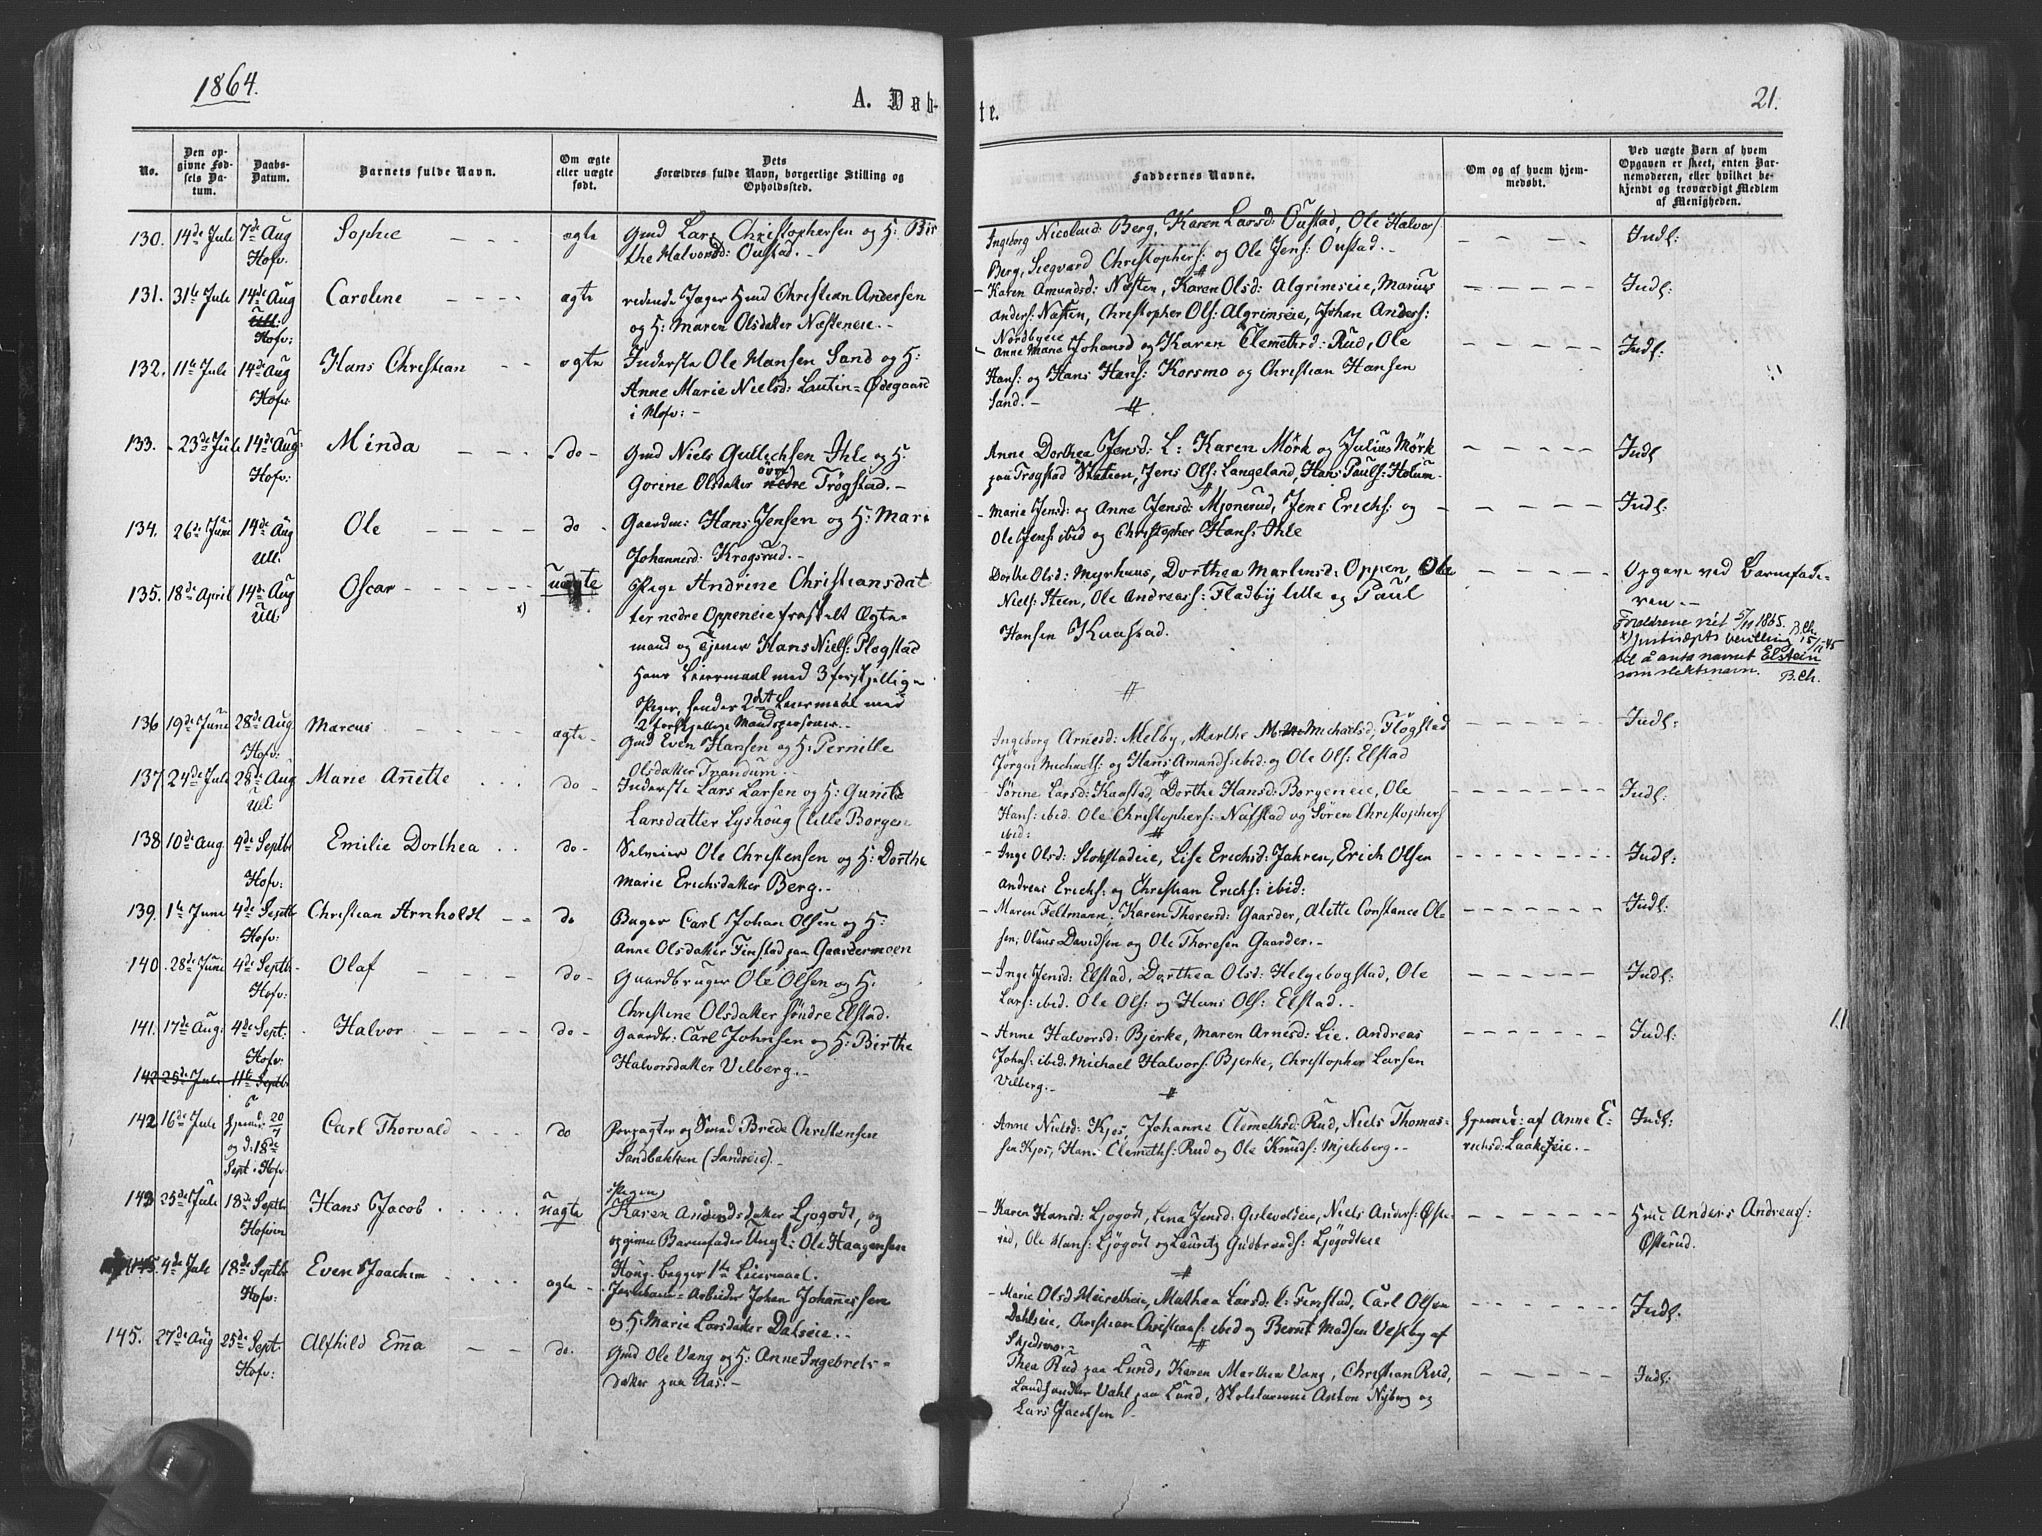 1864.
A. Døb-
te.
21.
No.
Den op-
givne Fød-
sels Da-
tum.
Daabs-
Datum.
Barnets fulde Navn.
Om ægte
eller uægte
født.
Dets
Forældres fulde Navn, borgerlige Stilling og
Opholdssted.
Faddernes Navne.
Om og af hvem hjem-
medøbt.
Ved uægte Børn af hvem
Opgaven er skeet, enten Bar-
nemoderen, eller hvilket be-
kjendt og troværdigt Medlem
af Menigheden.
130. 14de Juli 7de Aug Sophie ægte Gmd Lars Christophersen og H: Bir
Hofv. the Halvorsd: Oustad.
Ingeborg Nicolaid: Berg, Karen Larsd: Oustad, Ole Halvors: Indf:
Berg, Siegvard Christophers: og Ole Jens: Oustad.
131. 31te Juli 14de Aug Caroline ægte ridende Jæger Hmd Christian Andersen
Ull:
Hofv: og H: Maren Olsdatter Næsteneie.
Karen Amundsd: Næsten, Karen Olsd: Algrimseie, Marius Indf:
Anders: Næsten, Christopher Ols: Algrimseie, Johan Anders:
Nordbyeie
132. 11te Juli 14de Aug Hans Christian ægte Inderste Ole Hansen Sand og H:
Hofv: Anne Marie Nielsd: Lautin=Ødegaard
i Hofv:
Anne Marie Johansd og Karen Clemethsd: Rud, Ole Indf:
Hans: og Hans Hans: Korsmo og Christian Hansen
Sand.
133. 23de Juli 14de Aug: Minda do Gmd Niels Gullichsen Ihle og H:
Hofv: Gorine Olsdatter nedre øvre Trøgstad.
Anne Dorthea Jensd: L: Karen Mörk og Julius Mörk Indf
paa Trogstad Station, Jens Ols: Langeland, Hans Pauls: Holum
134. 26de Juni 14de Aug Ole do Gaardm: Hans Jensen og H: Mari
Ull. Johannesd: Krogsrud.
Marie Jensd: og Anne Jensd: Mjonerud, Jens Erichs: og Indf:
Ole Jens: ibid og Christopher Hans: Ihle
135. 18de April 14de Aug Oscar x) uægte Pige Andrine Christiansdat
Ull: ter nedre Oppeneie fraskilt Ægte-
mand og Tjener Hans Niels: Plogstad
Hans Leiermaal med 3 forskjellige
Piger, hendes 2det Leiermaal med
2 forskjellige Mandspersoner.
Dorthe Olsd: Myrhuus, Dorthea Martinsd: Oppen, Ole
Niels: Steen, Ole Andreas: Fladby lille og Paul
Hansen Kaastad.
Opgave ved Barnefade-
ren.
Foreldrene viet 5/11 1865. B.Ch.
x) Justisdepts bevilling 15/11 45
til å anta navnet Elstein
som slektsnavn. B.Ch.
136 19de Juni 28de Aug Marcus ægte Gmd Even Hansen og H: Pernille
Hofv: Olsdatter Trandum.
Ingeborg Arnesd: Melby, Marthe Michaelsd, Flogstad Indf:
Jörgen Michaels: og Hans Amunds: ibid: og Ole Ols: Elstad
137. 24de Juli 28de Aug Marie Anette do Inderste Lars Larsen og H: Gunild
Ull Larsdatter Lyshoug (lille Borgen
Sörine Larsd: Kaastad, Dorthe Hansd: Borgeneie, Ole Indf:
Hans: ibid. Ole Christophers: Nafstad og Sören Christophers
ibid:
138 10de Aug 4de Septbr Emilie Dorthea do Selveier Ole Christensen og H: Dorthe
Hofv: Marie Erichsdatter Berg.
Inge Olsd: Stokstadeie, Lise Erichsd: Jahren, Erich Olsen Indf:
Andreas Erichs: og Christian Erichs: ibid:
139. 1te Juni 4de Septbr Christian Arnholdt do Bager Carl Johan Olsen og H:
Hofv: Anne Olsdatter Finstad paa Gaardermoen
Maren Feltmann. Karen Thoresd: Gaarder, Alette Constance Ol- Indf:
sen; Olaus Davidsen og Ole Thoresen Gaarder.
140. 28de Juni 4de Septbr Olaf do Gaardbruger Ole Olsen og H:
Hofv: Christine Olsdatter söndre Elstad.
Inge Jensd: Elstad, Dorthea Olsd: Helgebogstad, Ole Indf:
Lars: ibid. Ole Ols: og Hans Ols: Elstad.
141. 17de Aug: 4de Sept. Halvor do Gaardbr: Carl Johnsen og H: Birthe
Hofv: Halvorsdatter Vilberg.
Anne Halvorsd: Bjerke, Maren Arnesd: Lie. Andreas Indf:
Johns: ibid. Michael Halvors: Bjerke, Christopher Larsen
Vilberg.
142 25de Juli 11te Septbr
142 16de Juli Hjemmed: 20/7 og d: 18de Sept. Hofv Carl Thorvald do Forpagter og Smed Brede Christensen
Sandbakken (Sandseie).
Anne Nielsd: Kjos, Johanne Clemethsd: Rud, Niels Thomas- Hjemmed: af Anne E- Indf:
sen Kjos, Hans Clemeths: Rud og Ole Knuds: Mjeleberg. richsd: Laakeeie.
143 25de Juli 18de Septbr Hans Jacob uægte Pigen
Hofvin Karen Amundsdatter Ljøgodt, og
opgiven Barnefader Ungk: Ole Haagensen
Houg. begges 1te Leiermaal.
Karen Hansd: Ljogodt, Lina Jensd: Gislevoldeie, Niels Anders: Øste- Hmd Anders Andreas:
rud, Ole Hans: Ljögodt og Lauritz Gudbrands: Ljögodteie Østerud.
145. 4de Juli 18de Septbr Even Joachim ægte Jernbane=Arbeider Johan Johannessen
Hofv: og H: Marie Larsdatter Dalseie.
Marie Olsd Meieretheie, Mathea Larsd: l: Finstad, Carl Olsen Indf.
Dahleie, Christian Christians: ibid og Bernt Madsen Vestby af
Skjedsmo.
145. 27de Aug 25de Sept. Alfhild Emma do. Gmd Ole Vang og H: Anne Ingebrets-
Hofv: datter paa Aas:
Thea Rud paa Lund, Karen Marthea Vang, Christian Rud, Indf:
Landhandler Vahl paa Lund, Skolelærerne Anton Nyberg og
Lars Jacobsen